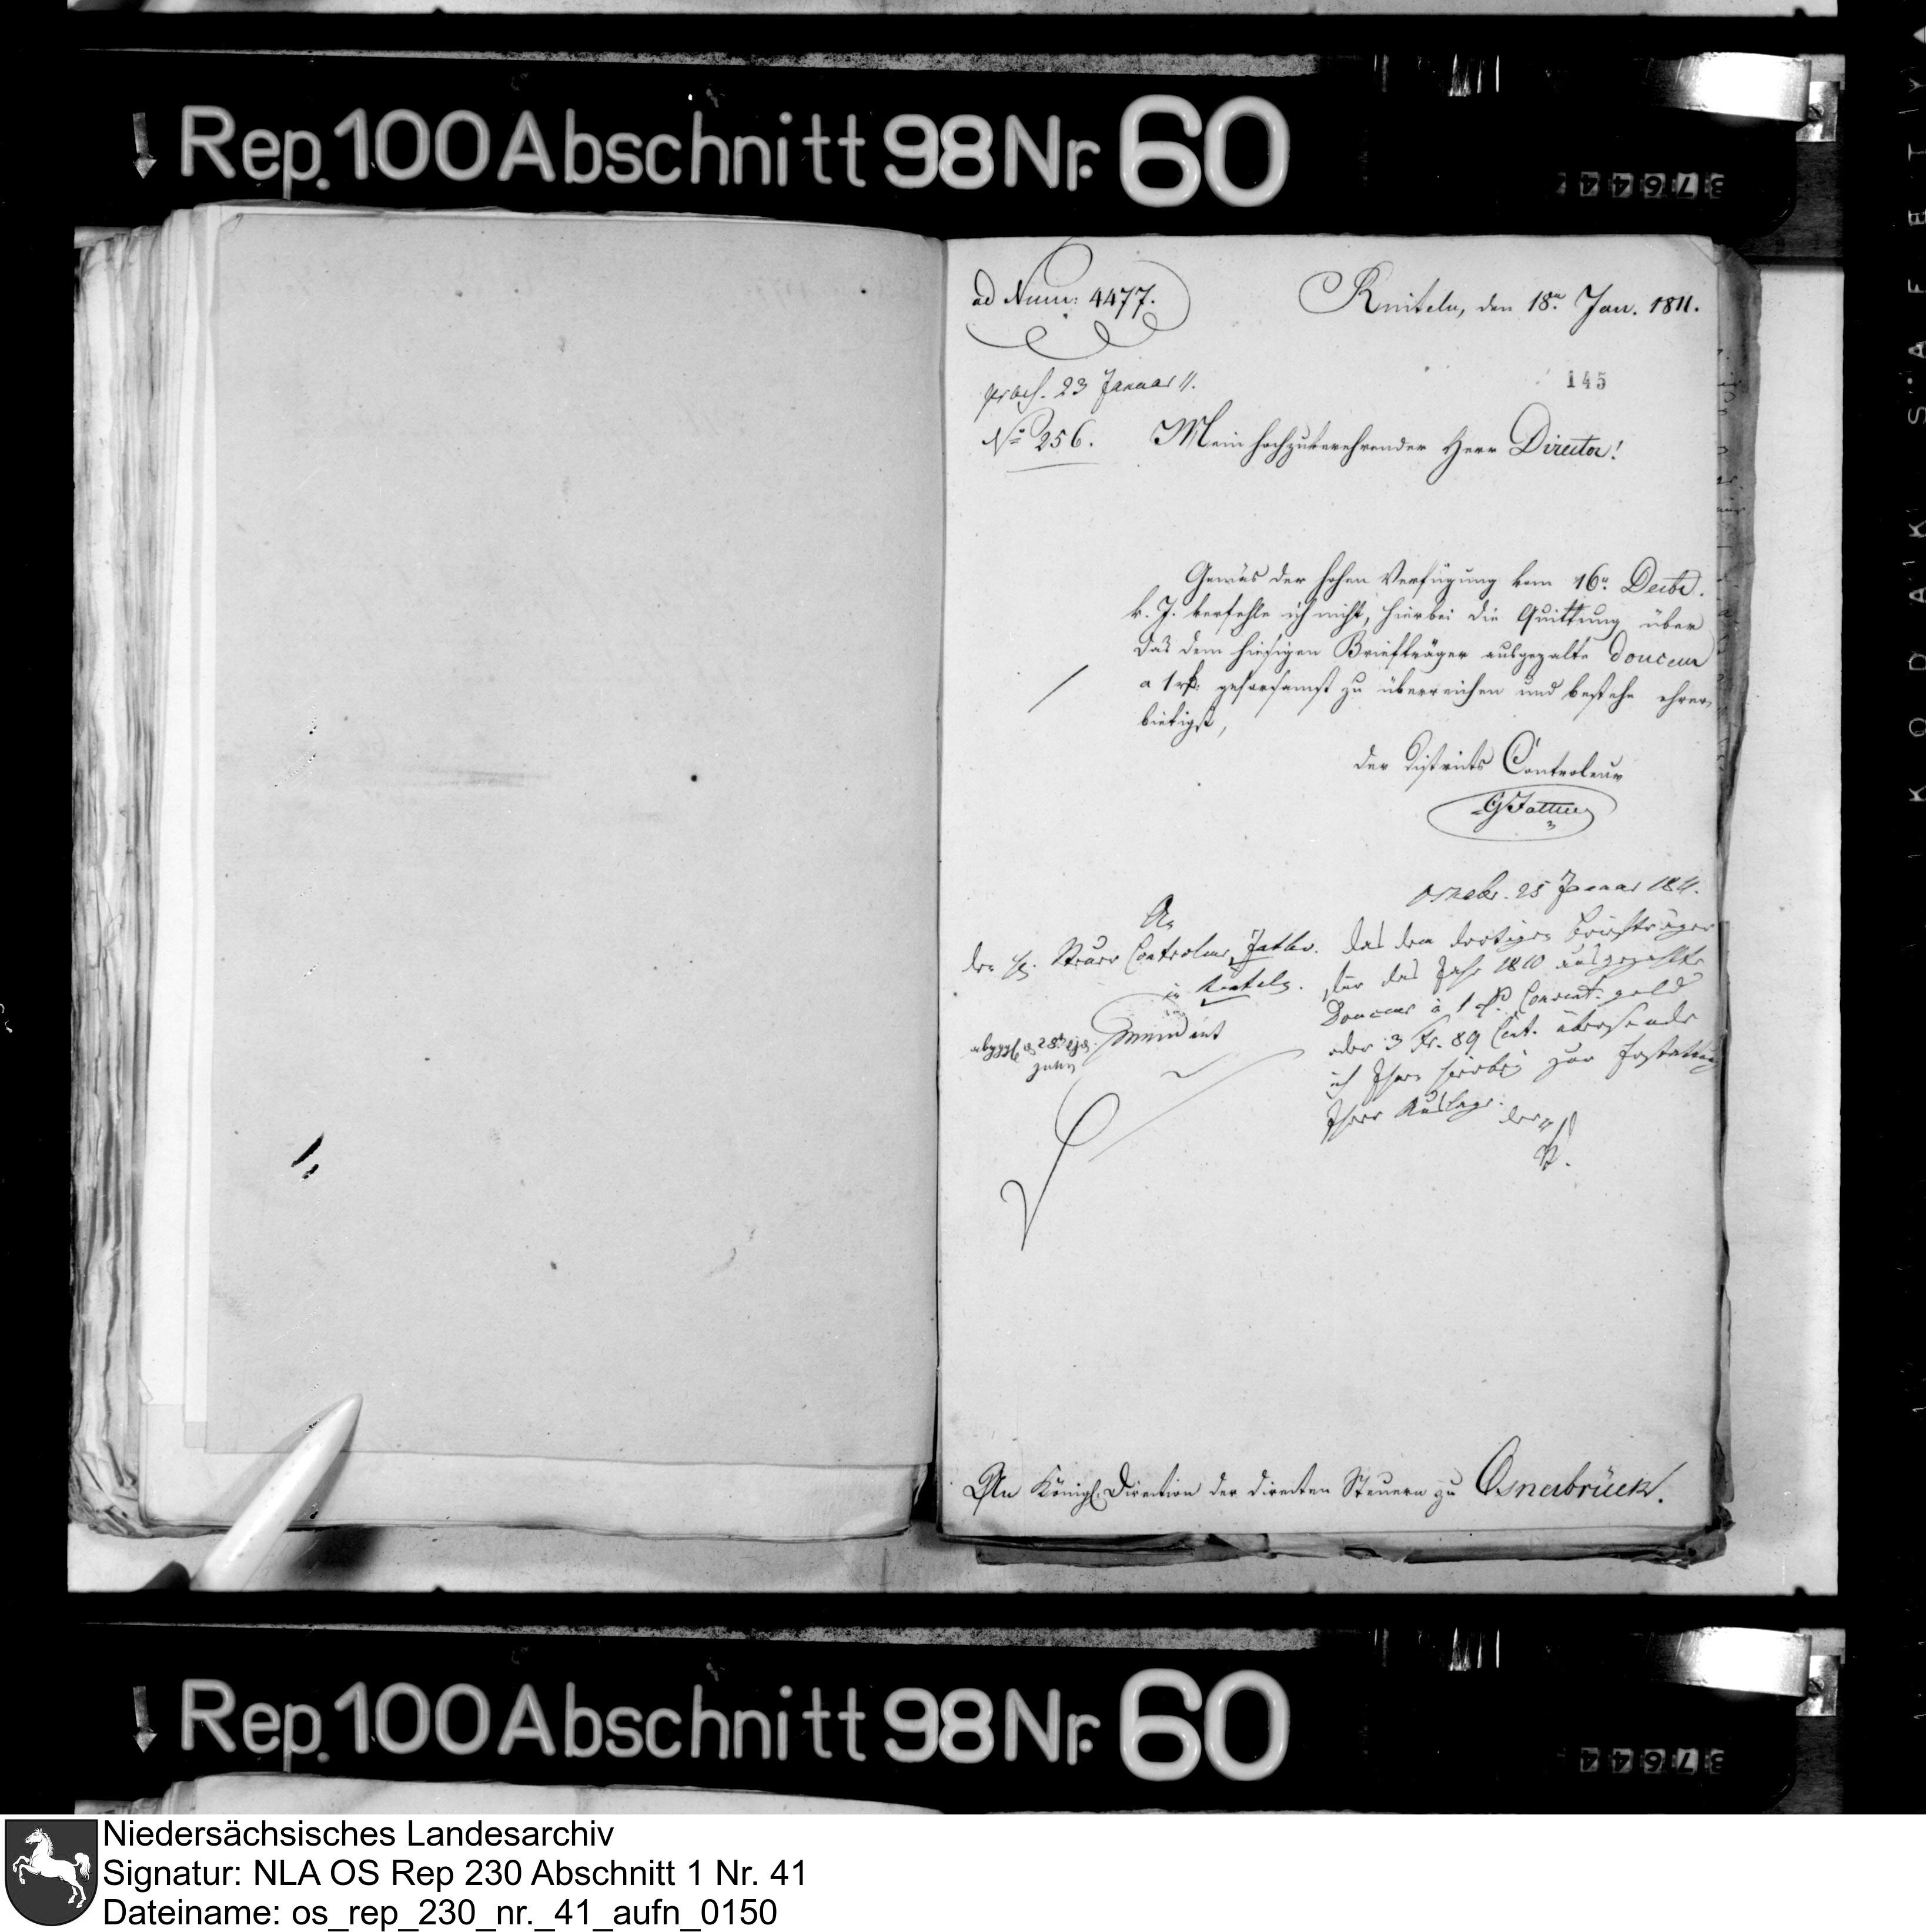 Rep. 100 Abschnitt 98 Nr. 60
37644
ad Num: 4477.
Rinteln, den 18n. Jan. 1811.
145
praes. 23 Januar 11.
No 256.
Mein hochzuverehrender Herr Director!
Gemäs der hohen Verfügung vom 16n. Decbr.
v. J. verfehle ich nicht, hierbei die Quittung über
das dem hiesigen Briefträger ausgezalte douceur
a 1 rt: gehorsamst zu überreichen und bestehe ehrer,
bietigst,
der Districts Controleur
Osnabr. 25 Januar 1811.
An
den H. Steuer Controleur
in Rinteln.
das dem dortigen Briefträger
für das Jahr 1810 ausgezahlte
Douceur à 1 rt Convent. geld
oder 3 Fr. 89 Cent. übersende
ich Ihnen hierbei zur Erstattung
Ihrer Auslage.
der
An Königl. Direction der directen Steuern zu Osnabrück.
Rep. 100 Abschnitt 98 Nr. 60
37644
KODAK SAFETY
Niedersächsisches Landesarchiv
Signatur: NLA OS Rep 230 Abschnitt 1 Nr. 41
Dateiname: os_rep_230_nr._41_aufn_0150